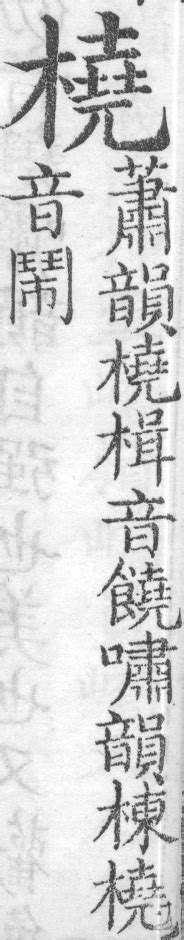 橈
蕭韻橈楫音饒嘯韻棟橈
音鬧